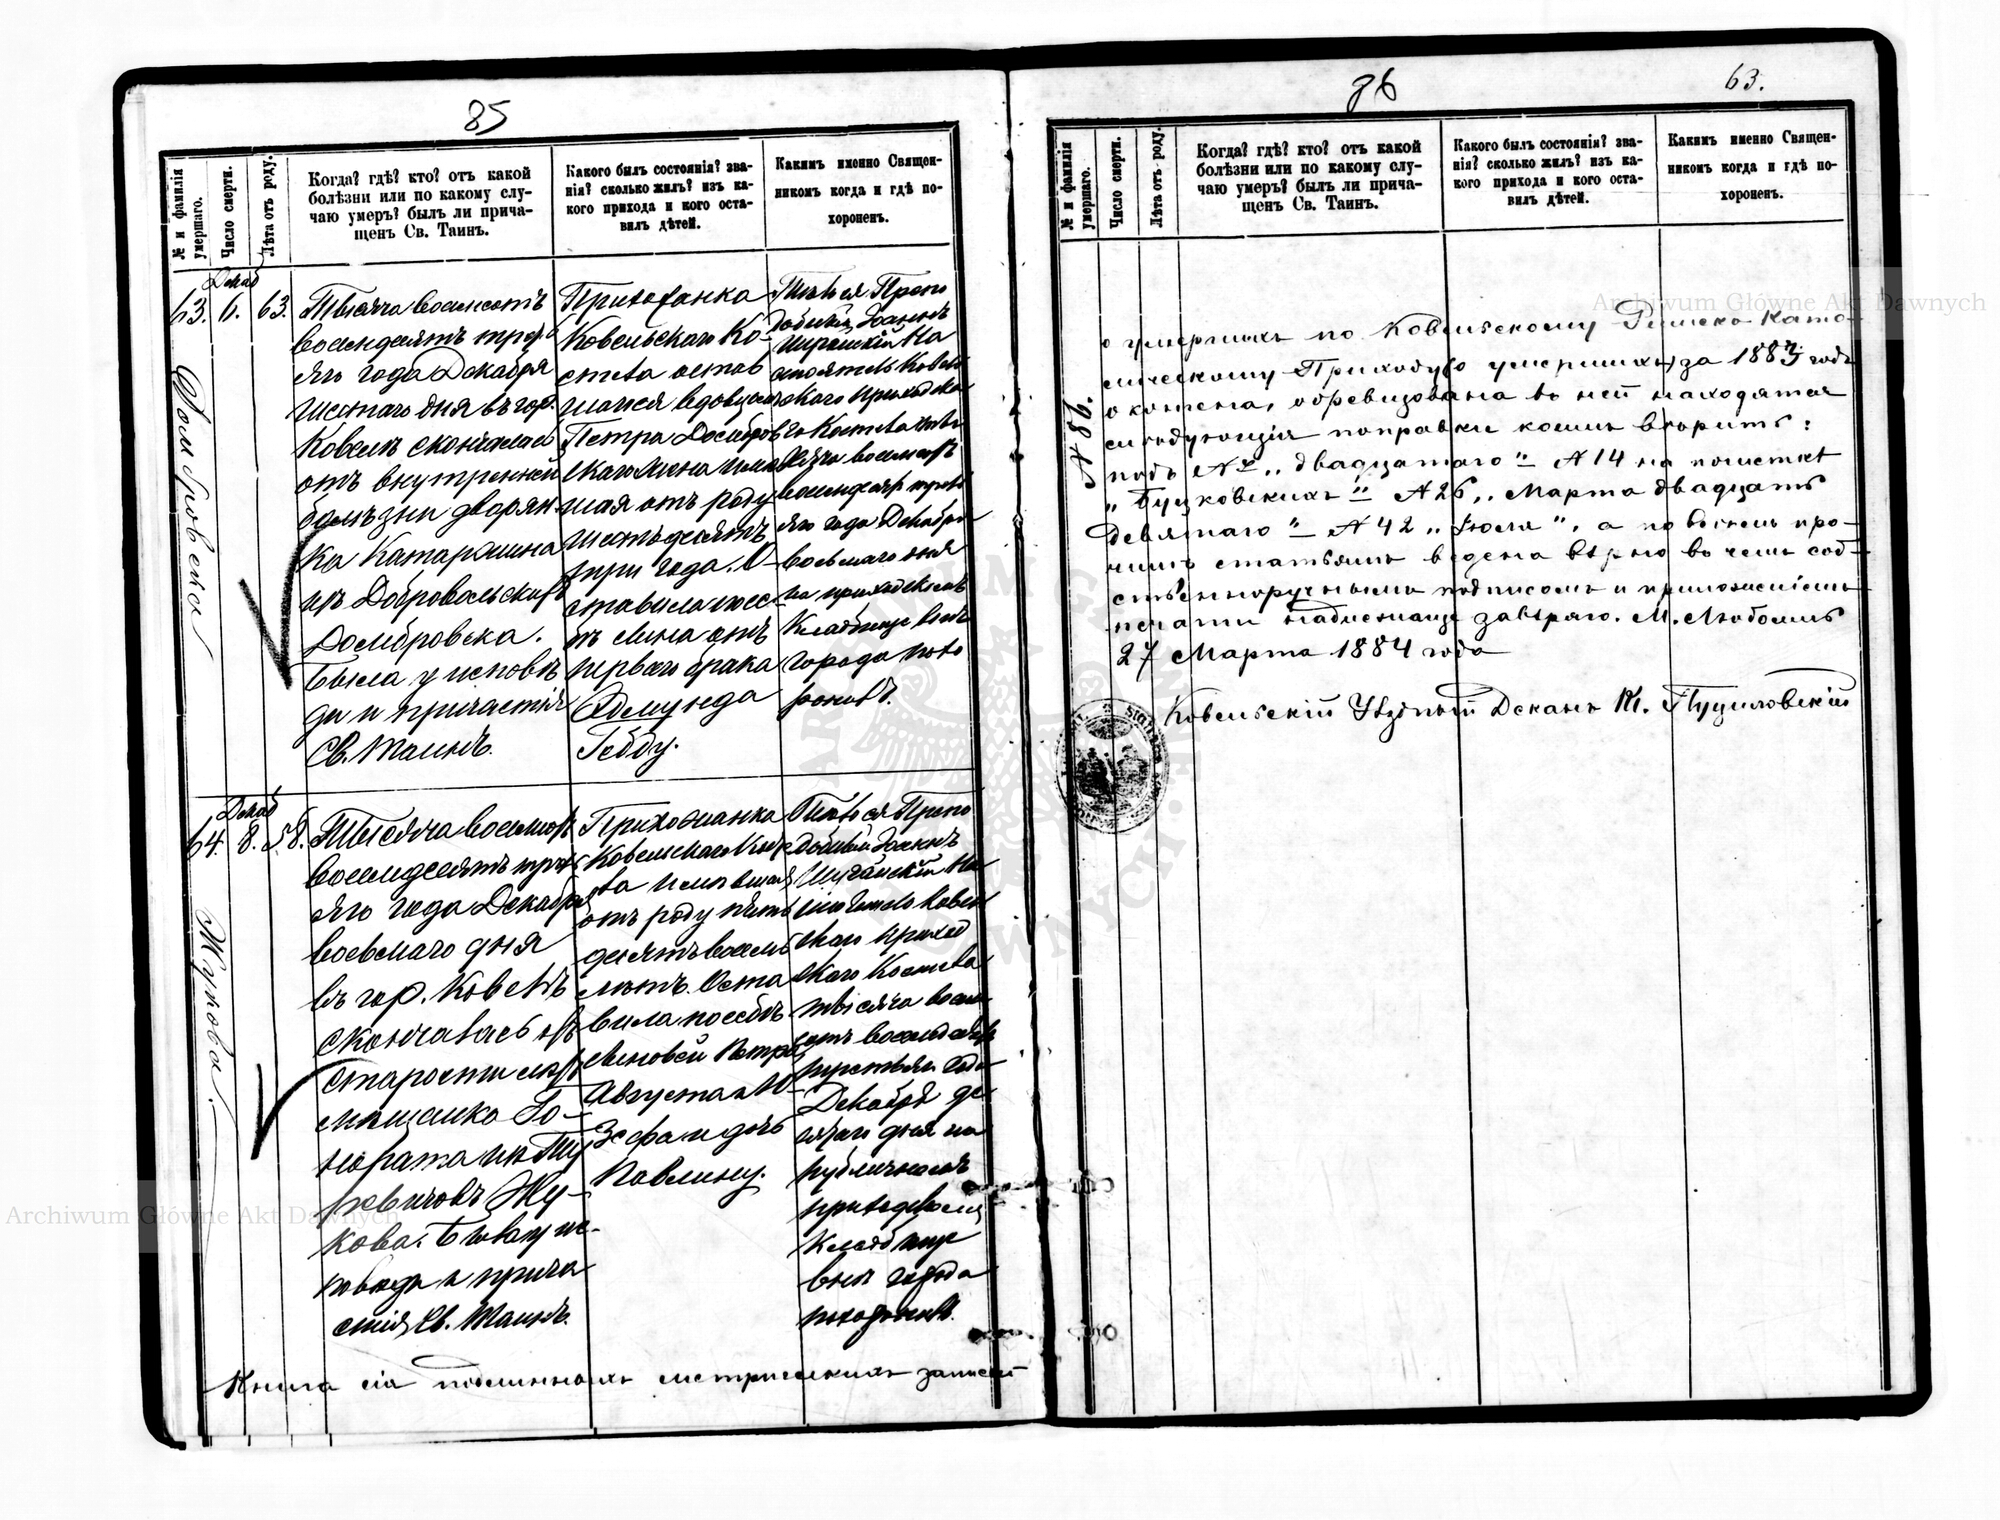 85
№ и фамилія умершаго.
Число смерти.
Лѣта отъ роду.
Когда? гдѣ? кто? отъ какой
болѣзни или по какому слу-
чаю умеръ? былъ ли прича-
щенъ Св. Таинъ.
Какого былъ состоянія? зва-
нія? сколько жилъ? изъ ка-
кого прихода и кого оста-
вилъ дѣтей.
Какимъ именно Священ-
никомъ когда и гдѣ по-
хороненъ.
Декаб
63. 6. 63.
Домбровска
Тысяча восемсотъ
восемдесятъ треть
яго года Декабря
шестаго дня въ гор.
Ковелѣ скончалась
отъ внутренней
болѣзни дворян
ка Катаржина
изъ Добровольскихъ
Домбровска.
Была у исповѣ
ди и причастія
Св. Таинъ.
Прихожанка
Ковельскаго Ко-
стела остав
шаяся вдовцомъ
Петра Домбров
скаго жена имѣв
шая отъ роду
шестьдесятъ
три года. О-
ставила
сына отъ
перваго брака
Эдмунда
Гедду.
Тѣло ея Препо
добный Іоаннъ
На
стоятель Ковель
скаго приходска
го Костела
тысяча восемсотъ
восемдесят треть
яго года Декабря
восьмаго дня
на приходскомъ
Кладбище внѣ
города похо
ронилъ.
Декаб
64. 8. 58.
Жукова.
Тысяча восемсотъ
восемдесятъ треть
яго года Декабря
восьмаго дня
въ гор. Ковелѣ
скончалась отъ
старости лѣтъ
мѣщанка Го-
нората изъ
ревичовъ Жу-
кова. Была у ис-
повѣди и прича
стія Св. Таинъ.
Прихожанка
Ковельскаго Косте
ла имѣвшая
отъ роду пять
десятъ восемь
лѣтъ. Оста
вила по себѣ
сыновей Петра,
Августа и Ю-
зефа и дочь
Павлину.
Тѣло ея Препо
добный Іоаннъ
На
стоятель Ковель
скаго приход
скаго Костела
тысяча восем
сотъ восемдесятъ
третьяго года
Декабря де-
вятаго дня на
публичномъ
приходскомъ
Кладбище
внѣ города
похоронилъ.
Книга сія подлинныхъ метрическихъ записей
86
63.
№ и фамилія умершаго.
Число смерти.
Лѣта отъ роду.
Когда? гдѣ? кто? отъ какой
болѣзни или по какому слу-
чаю умеръ? былъ ли прича-
щенъ Св. Таинъ.
Какого былъ состоянія? зва-
нія? сколько жилъ? изъ ка-
кого прихода и кого оста-
вилъ дѣтей.
Какимъ именно Священ-
никомъ когда и гдѣ по-
хороненъ.
№ 86.
о умершихъ по Ковельскому Римско Като-
лическому Приходу (о умершихъ) за 1883 годъ
окончена, обревизована въ ней находятся
слѣдующія поправки коимъ вѣрить:
подъ № „двадцатаго“ № 14 на помѣткѣ
„Буцковскихъ“ № 26 „Марта двадцать
девятаго“ № 42 „Іюля“, а по всѣмъ про-
чимъ статьямъ ведена вѣрно въ чемъ соб-
ственноручнымъ подписомъ и приложеніемъ
печати надлежаще завѣряю. М. Любомль
27 Марта 1884 года
Ковельскій Уѣздный Деканъ Кс. Пуциловскій
Archiwum Główne Akt Dawnych
Archiwum Główne Akt Dawnych